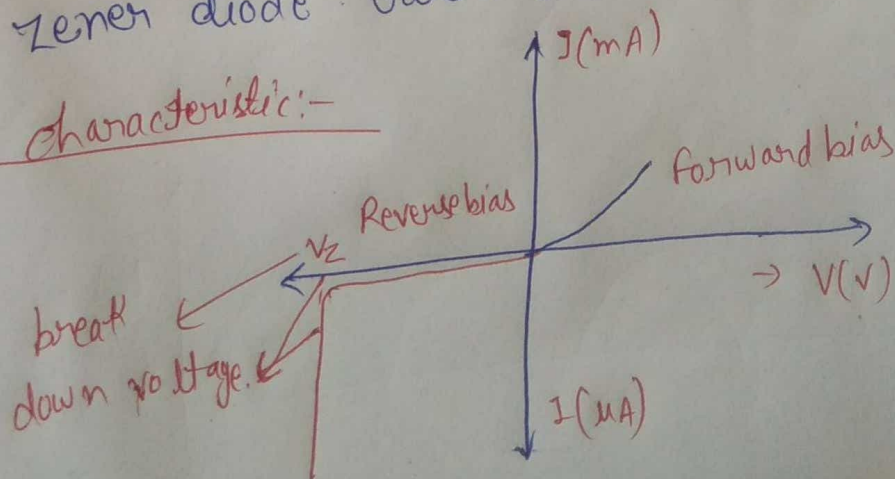 Zener diode
characteristic:-
I(mA)
Forward bias
Reverse bias
Vz
→ V(V)
break
down voltage.
I(μA)